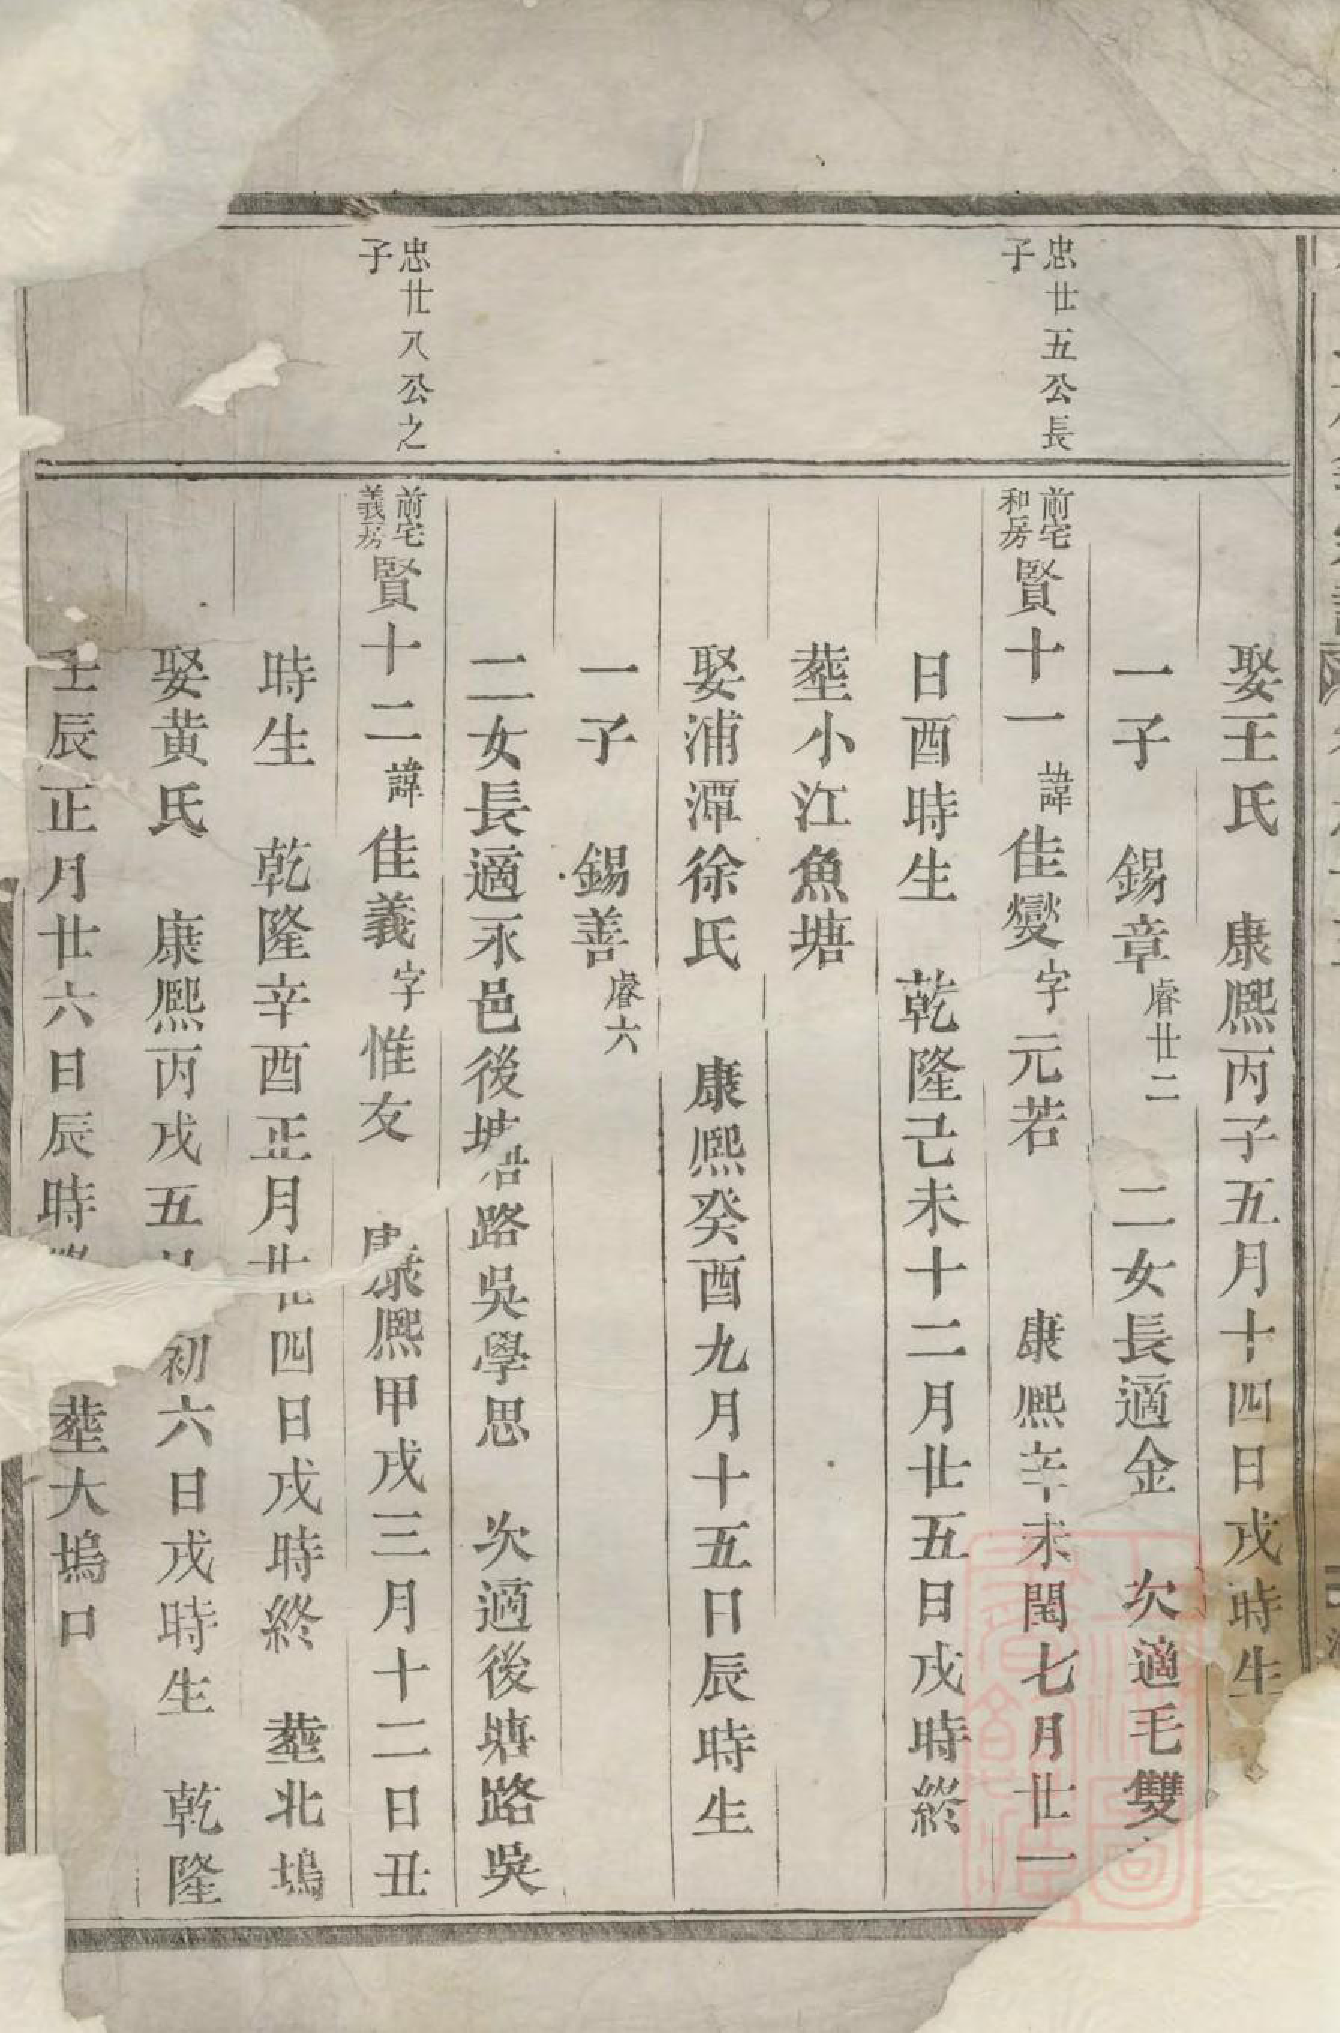 娶王氏　康熈丙子五月十四日戌時生
一子　錫章睿廿二　二女長適金　次適毛雙
忠廿五公長
子
前宅
和房
賢十一諱佳燮字元若　康熈辛未閏七月廿一
日酉時生　乾隆己未十二月廿五日戌時終
塟小江魚塘
娶浦潭徐氏　康熈癸酉九月十五日辰時生
一子　錫善睿六
二女長適永邑後塘路吳學思　次適後塘路吳
忠廿八公之
子
前宅
義房
賢十二諱佳義字惟友　康熈甲戌三月十二日丑
時生　乾隆辛酉正月廿四日戌時終　塟北塢
娶黄氏　康熈丙戌五月初六日戌時生　乾隆
壬辰正月廿六日辰時終　塟大塢口